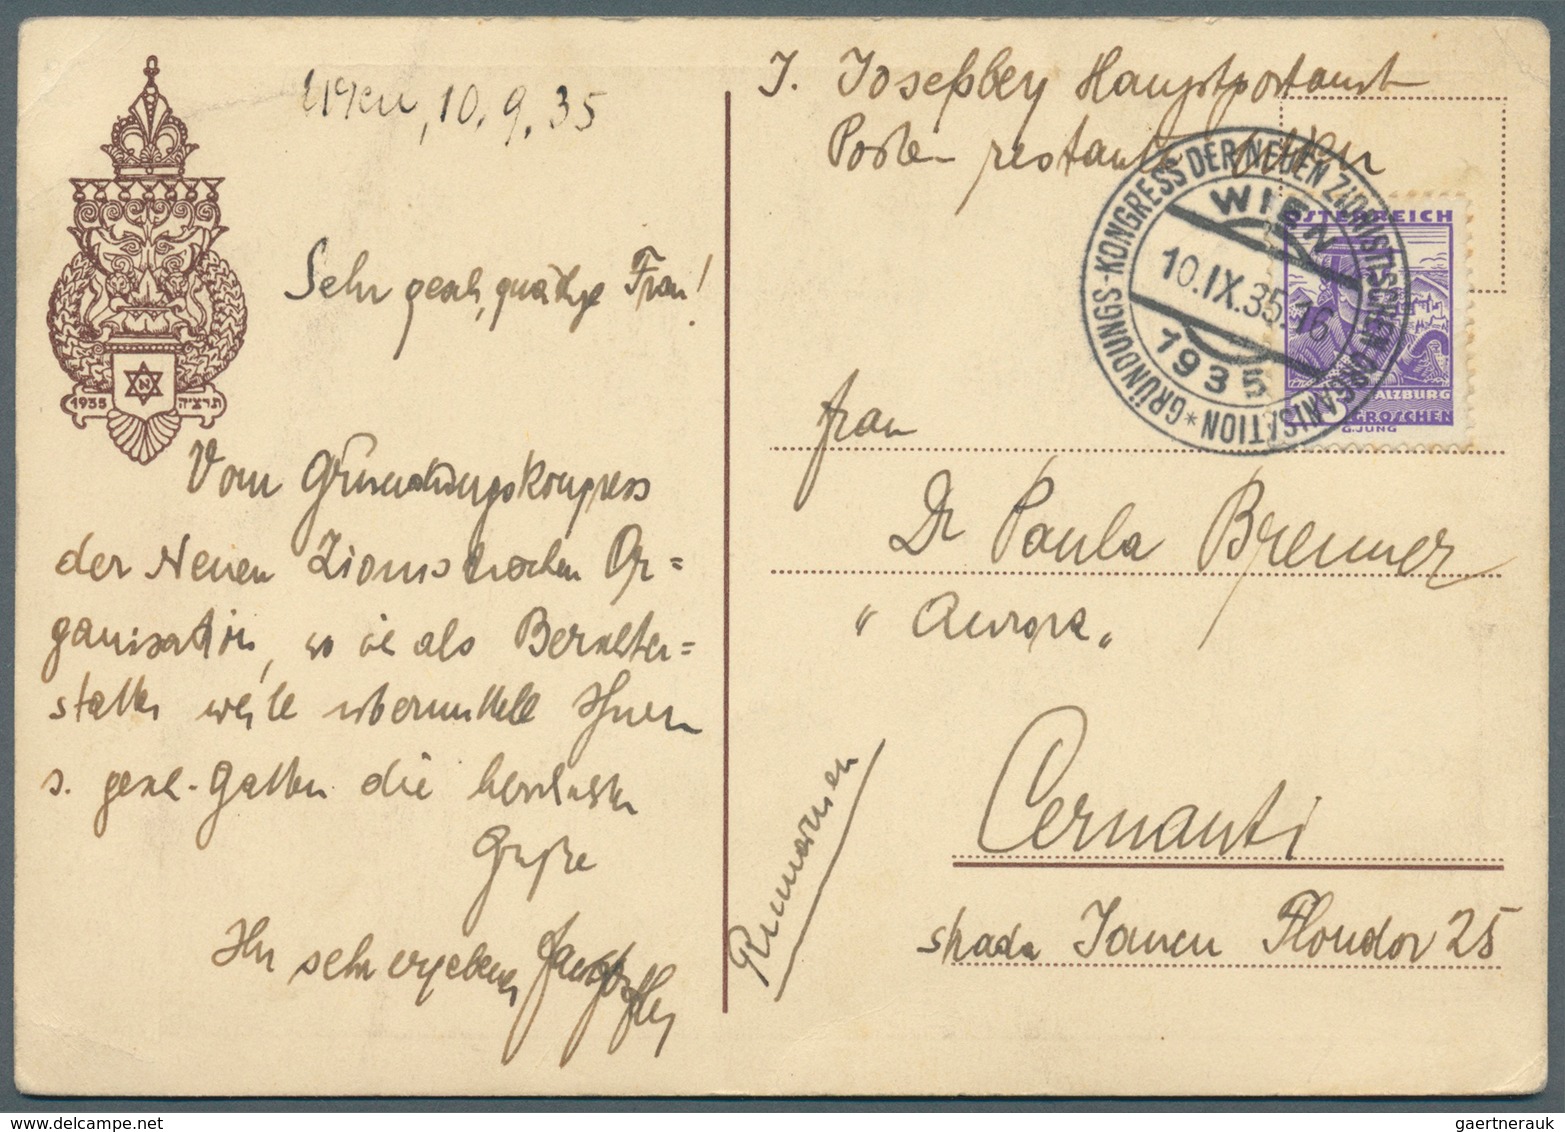 Wien, 10.9.35
Sehr geeh, gnädige Frau!
1935 תרצ״ה
N
Vom Gründungskongress
der Neuen Zionistischen Or=
ganisation, wo ich als Berichter=
statter weile übermittelt Ihnen
u. geehr. Gatten die herzlichsten
Grüße
Ihr sehr ergebener
J. Josephbey Hauptpostamt
Poste restante Wien
GRÜNDUNGS-KONGRESS DER NEUEN ZIONISTISCHEN ORGANISATION *
WIEN
10.IX.35.16
1935
ÖSTERREICH
SALZBURG
GROSCHEN
G. JUNG
Frau
Dr Paula Brenner
"Aurora"
Cernauti
strada Iancu Flondor 25
Rumänien
gaertnerauk